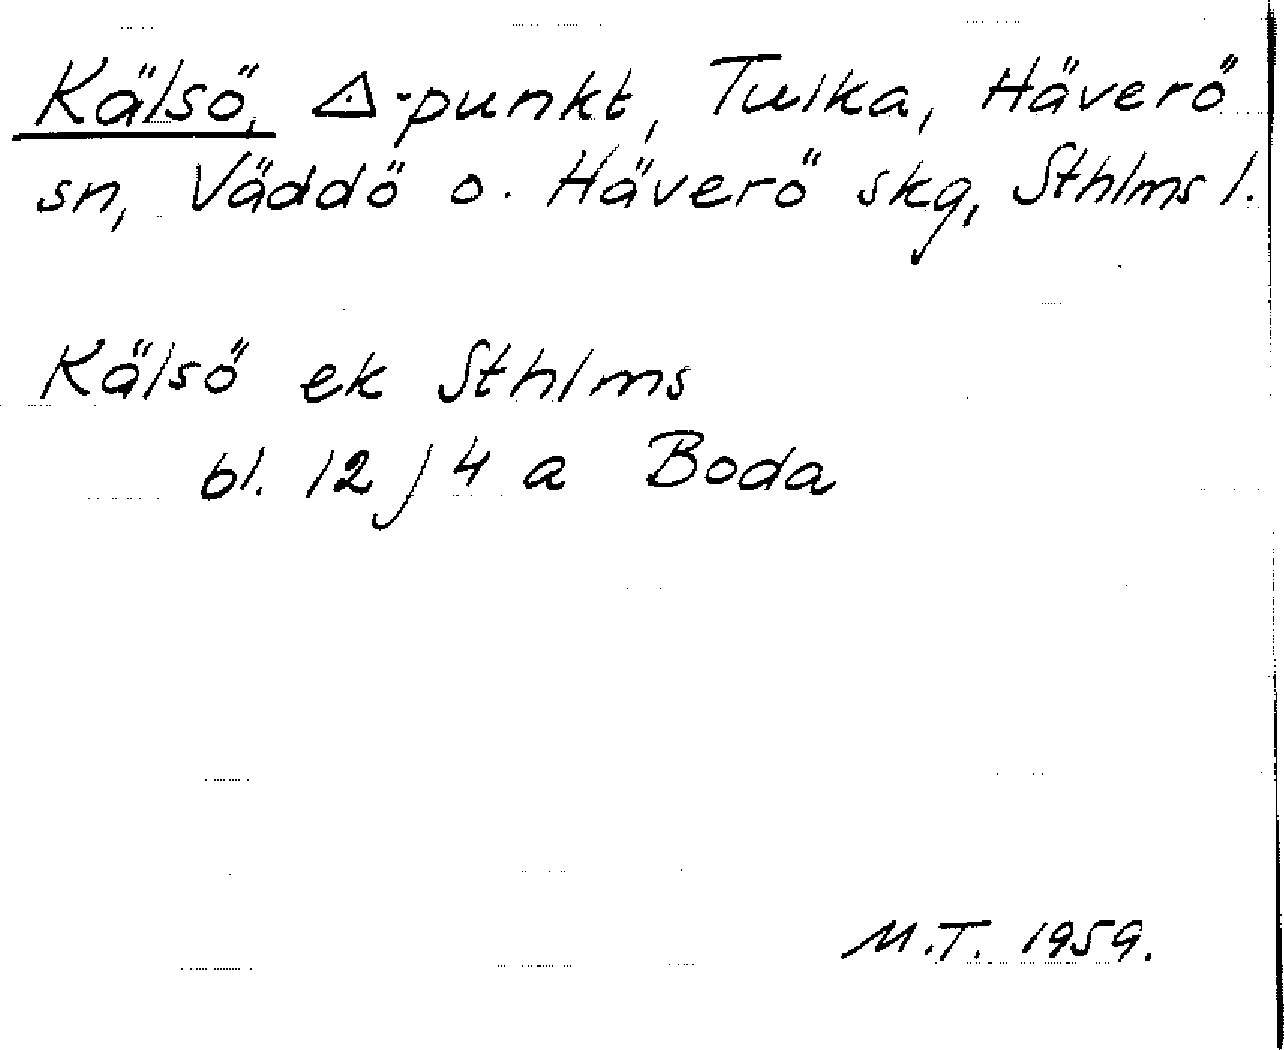 Kälsö, △-punkt, Tulka, Häverö
sn, Väddö o. Häverö skg, Sthlms l.
Kälsö ek Sthlms
bl. 12 j 4 a Boda
M.T. 1959.